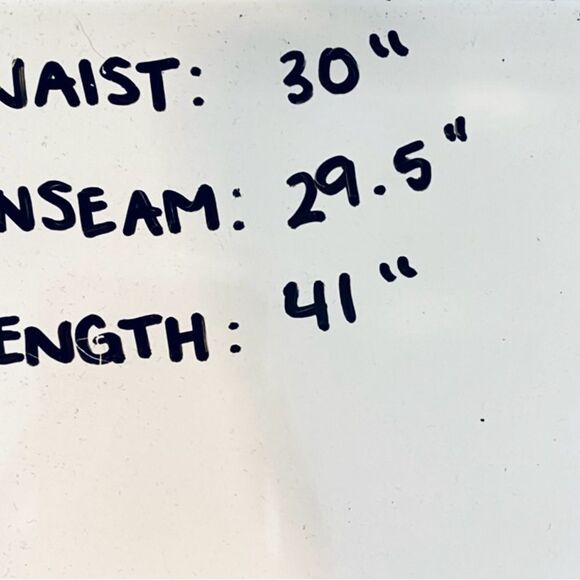 WAIST: 30"
INSEAM: 29.5"
LENGTH: 41"